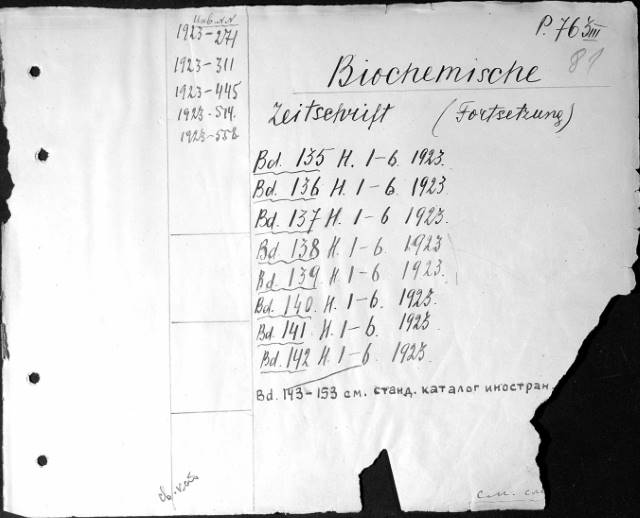 Инв. №№
1923-271
1923-311
1923-445
1923-514.
1923-558
P. 76 III
81
Biochemische
Zeitschrift (Fortsetzung)
Bd. 135 H. 1-6. 1923.
Bd. 136 H. 1-6. 1923
Bd. 137 H. 1-6 1923.
Bd. 138 H. 1-6. 1923
Bd. 139. H. 1-6 1923.
Bd. 140. H. 1-6. 1923.
Bd. 141 H. 1-6. 1923
Bd. 142 H. 1-6 1923.
Bd. 143-153 см. станд. каталог иностран.
см.